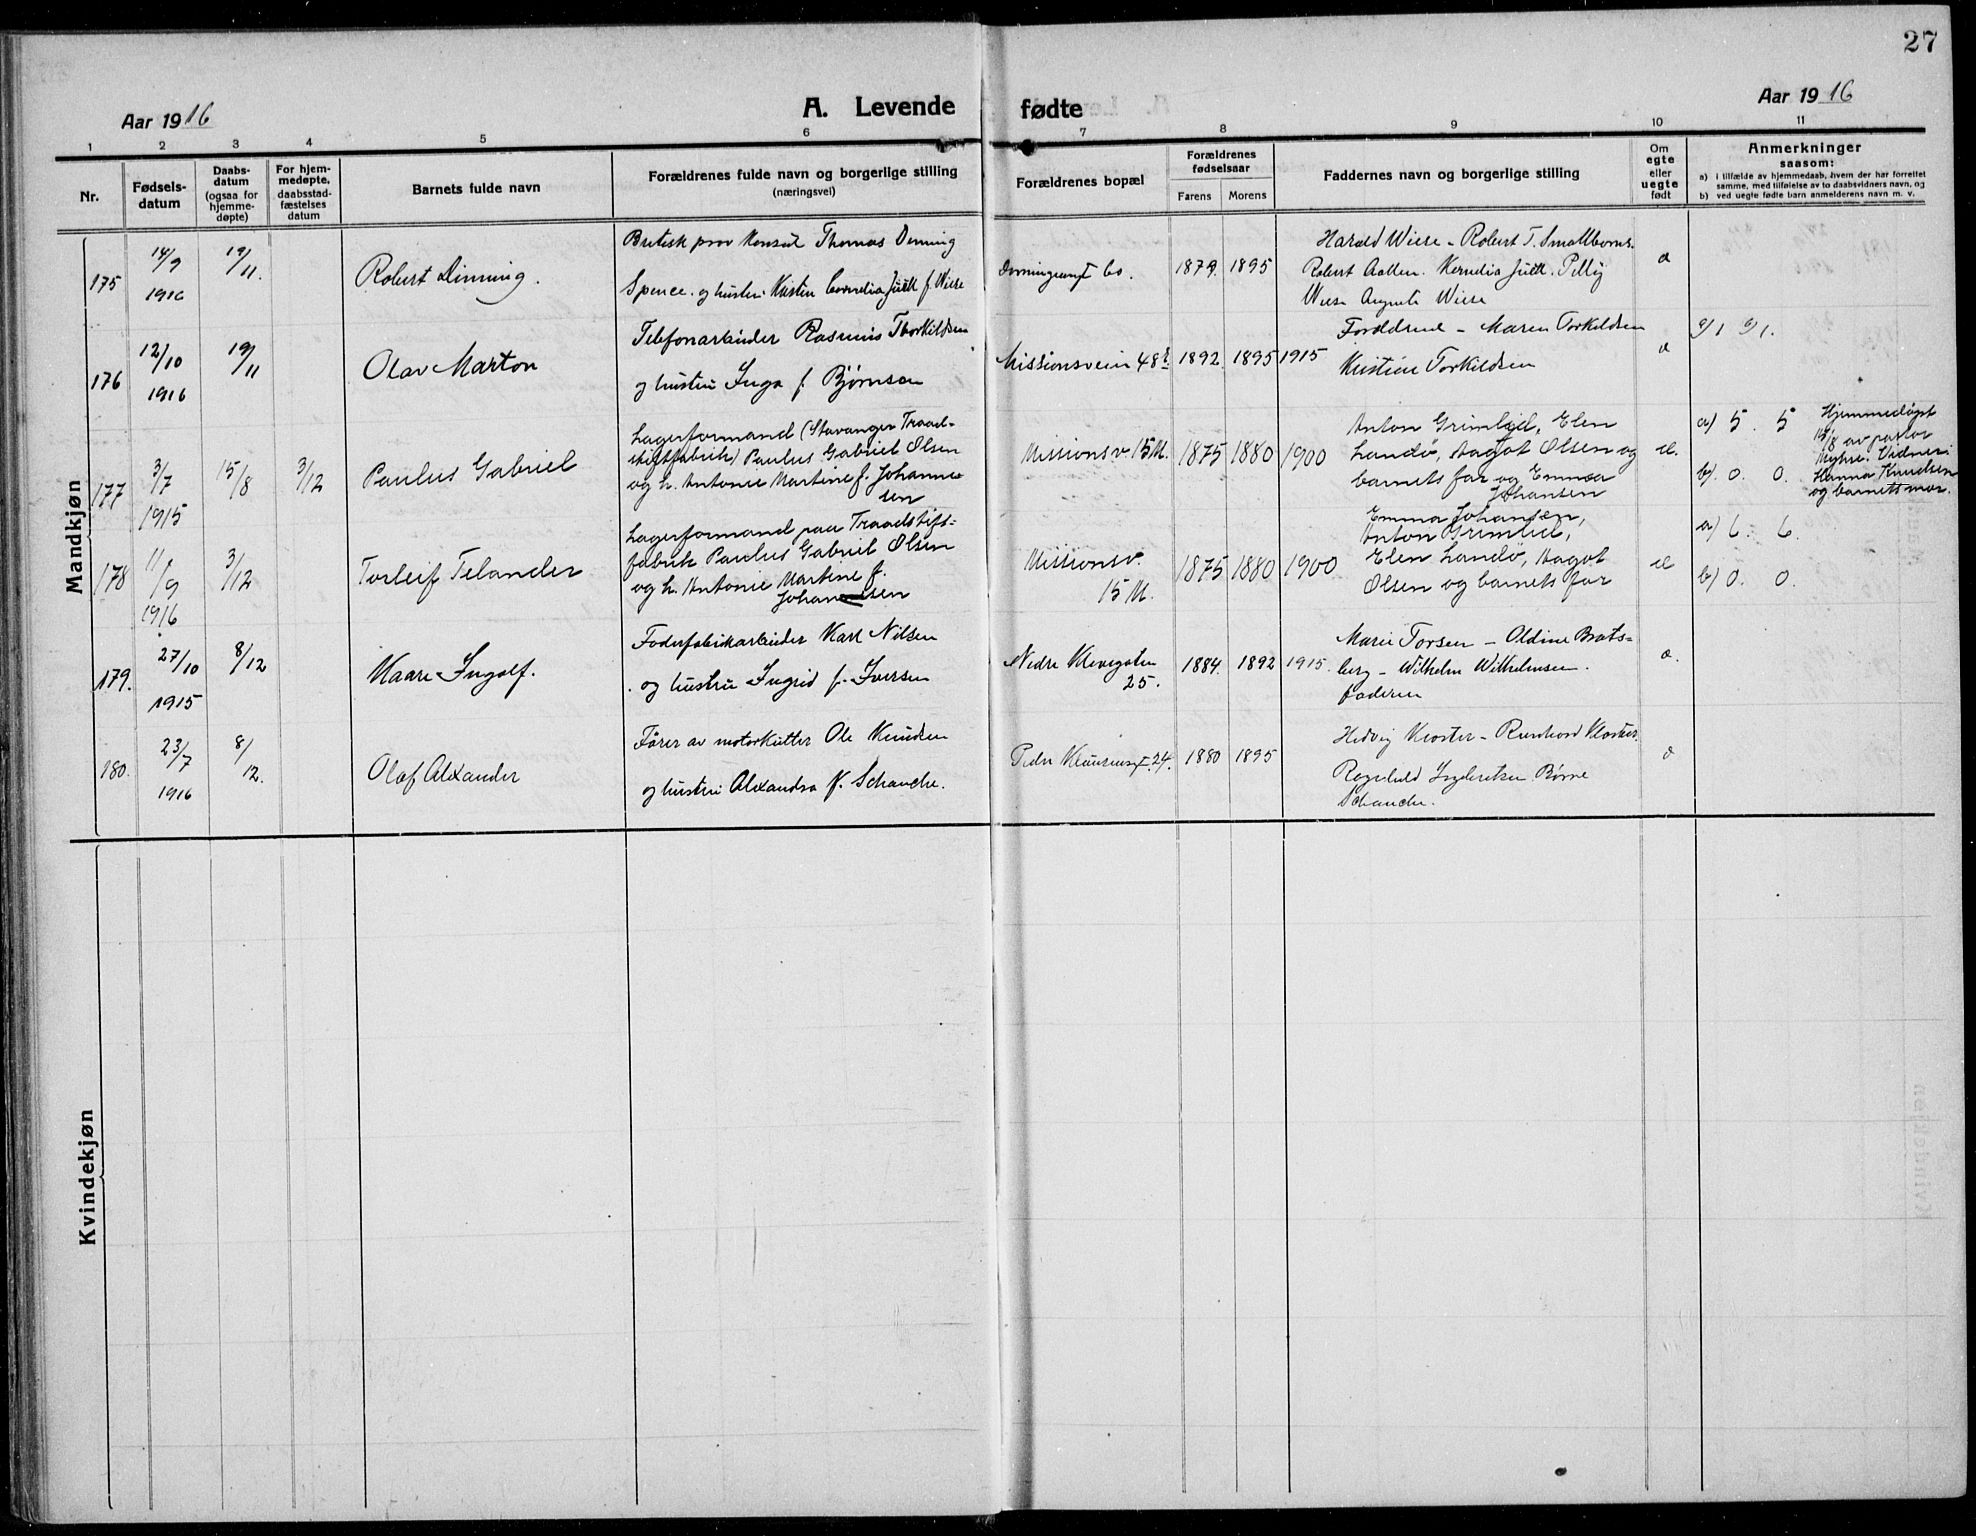 27
Aar 1916
A. Levende fødte
Aar 1916
1 2 3 4 5 6 7 8 9 10 11
Nr.
Fødsels-
datum
Daabs-
datum
(ogsaa for
hjemme-
døpte)
For hjem-
medøpte,
daabsstad-
fæstelses
datum
Barnets fulde navn
Forældrenes fulde navn og borgerlige stilling
(næringsvei)
Forældrenes bopæl
Forældrenes
fødselsaar
Farens Morens
Faddernes navn og borgerlige stilling
Om
egte
eller
uegte
født
Anmerkninger
saasom:
a) i tilfælde av hjemmedaab, hvem der har forrettet
samme, med tilføielse av to daabsvidners navn, og
b) ved uegte fødte barn anmelderens navn m. v.
Mandkjøn
175
14/9
1916
19/11.
Robert Dinning.
Britisk prov Konsul Thomas Dinning
Spence. og hustru Kirsten Cornelia Judt f. Wiese
1879. 1895
Harald Wiese - Robert T. Smallbones.
Robert Aatten.
Wiese Augusta Wiese
176
12/10
1916
19/11
Olav Marton
Telefonarbeider Rasmus Thorkildsen
og hustru Inga f. Bjørnsen
Missionsveien 48
1892 1895 1915
Forældrene - Maren Torkildsen
Kristine Torkildsen
177
3/7
1915
15/8
3/12
Paulus Gabriel
Lagerformand (Stavanger Traad-
stiftfabrik) Paulus Gabriel Olsen
og h. Antonie Martine f. Johanne
sen
Missionsv. 15 M.
1875 1880 1900
Anton Grimlid, Elen
Landø, Aagot Olsen og
barnets far og Emma
Johansen
æ.
a) 5. 5
b). 0. 0.
Hjemmedøpt
15/8 av pastor
Myhre. Vidner:
Hanna Knudsen
og barnets mor.
178
11/9
1916
3/12
Torleif Telander
Lagerformand paa Traadstift-
fabrik Paulus Gabriel Olsen
og h. Antonie Martine f.
Johansen
Missionsv.
15 M.
1875 1880 1900
Emma Johansen,
Anton Grimlid,
Elen Landø, Aagot
Olsen og barnets far
æ
a) 6. 6.
b) 0. 0.
179.
27/10
1915
8/12
Kaare Ingolf.
Foderfabrikarbeider Karl Nilsen
og hustru Ingrid f. Iversen
Nedre Klevegaten
25.
1884. 1892 1915.
Marie Torsen - Oldine Brats-
berg - Wilhelm Wilhelmsen.
faderen
180.
23/7
1916
8/12.
Olaf Alexander
Fører av motorkutter Ole Knudsen
og hustru Alexandra f. Schanche.
24.
1880 1895
Hedvig Kloster - Reinhard Kloster.
Ragnhild
Schanche.
Kvindekjøn